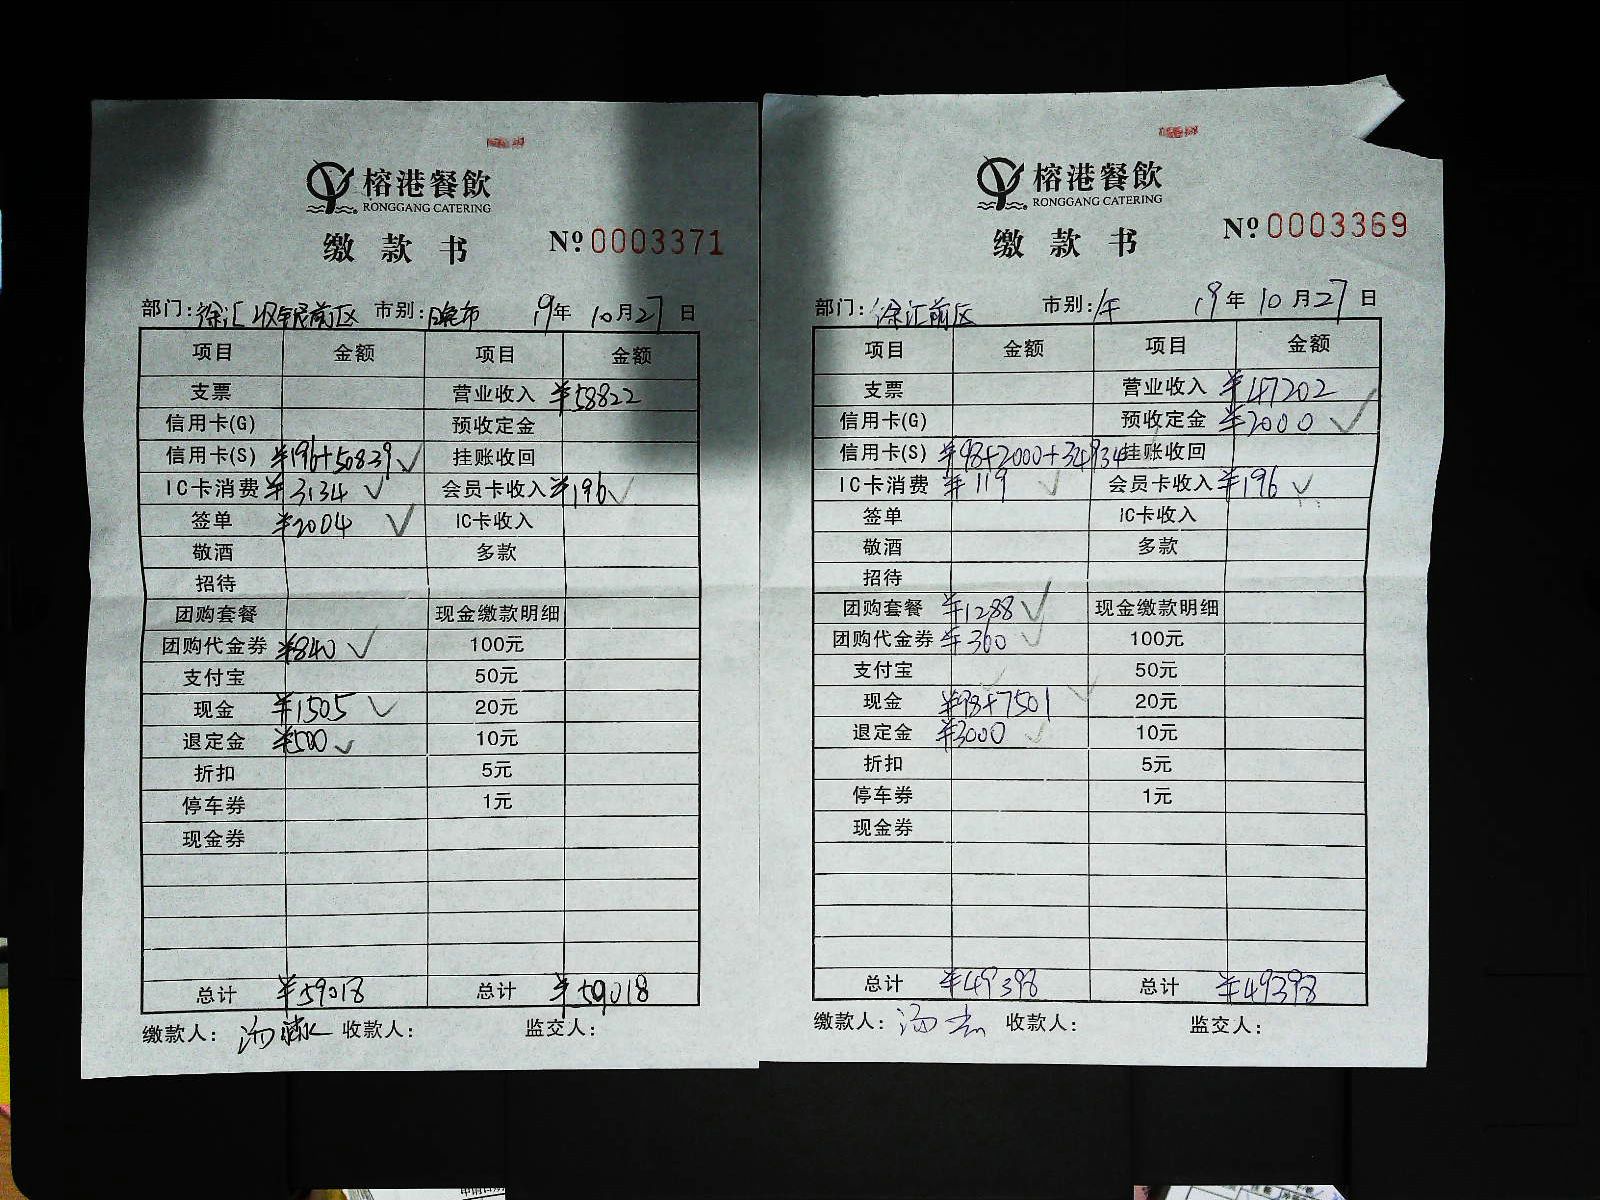 榕港餐飲
RONGGANG CATERING
缴款书
№ 0003371
部门: 徐汇收银前区 市别: 晚市 19年 10月27日
项目 金额 项目 金额
支票 营业收入 ¥58822
信用卡(G) 预收定金
信用卡(S) ¥196+50839 挂账收回
IC卡消费 ¥3134 会员卡收入 ¥196
签单 ¥2004 IC卡收入
敬酒 多款
招待
团购套餐 现金缴款明细
团购代金券 ¥840 100元
支付宝 50元
现金 ¥1505 20元
退定金 ¥500 10元
折扣 5元
停车券 1元
现金券
总计 ¥59018 总计 ¥59018
缴款人: 汤 收款人: 监交人:
榕港餐飲
RONGGANG CATERING
缴款书
№ 0003369
部门: 徐汇前区 市别: 午 19年 10月27日
项目 金额 项目 金额
支票 营业收入 ¥47202
信用卡(G) 预收定金 ¥2000
信用卡(S) ¥98+2000+34934 挂账收回
IC卡消费 ¥119 会员卡收入 ¥196
签单 IC卡收入
敬酒 多款
招待
团购套餐 ¥1288 现金缴款明细
团购代金券 ¥360 100元
支付宝 50元
现金 ¥98+7501 20元
退定金 ¥3000 10元
折扣 5元
停车券 1元
现金券
总计 ¥49398 总计 ¥49398
缴款人: 汤 收款人: 监交人: